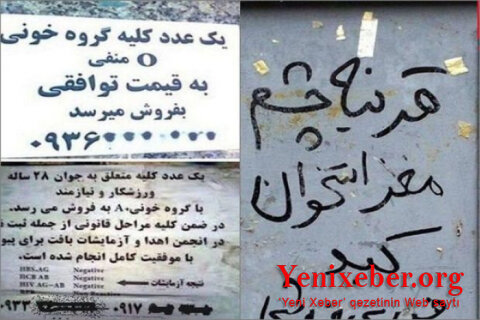 یک عدد کلیه گروه خونی
O منفی
به قیمت توافقی
بفروش میرسد
۰۹۳۶
یک عدد کلیه متعلق به جوان ۲۸ ساله
ورزشکار و نیازمند
با گروه خونی A، به فروش می رسد.
در ضمن کلیه مراحل قانونی از جمله ثبت
در انجمن اهدا و آزمایشات بافت برای
با موفقیت کامل انجام شده است.
HBS.AG Negative
HCB AB Negative
HIV AG-AB Negative
نتیجه آزمایشات
۰۹۱۷
قرنیه چشم
مغز استخوان
کبد
Yenixeber.org
'Yeni Xeber' qezetinin Web saytı